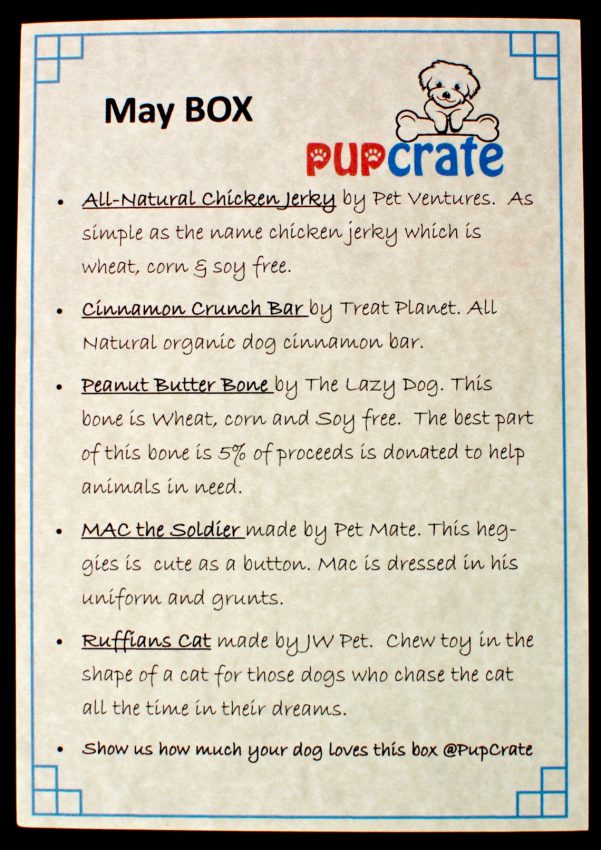 May BOX
PUPCrate
• All-Natural Chicken Jerky by Pet Ventures. As
simple as the name chicken jerky which is
wheat, corn & soy free.
• Cinnamon Crunch Bar by Treat Planet. All
Natural organic dog cinnamon bar.
• Peanut Butter Bone by The Lazy Dog. This
bone is Wheat, corn and Soy free. The best part
of this bone is 5% of proceeds is donated to help
animals in need.
• MAC the Soldier made by Pet Mate. This heg-
gies is cute as a button. Mac is dressed in his
uniform and grunts.
• Ruffians Cat made by JW Pet. Chew toy in the
shape of a cat for those dogs who chase the cat
all the time in their dreams.
• Show us how much your dog loves this box @PupCrate